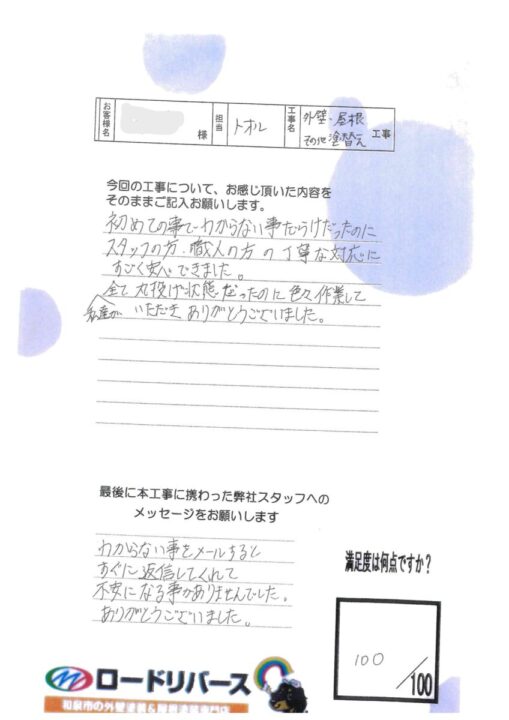 お客様名 様 担当 トオル 工事名 外壁・屋根 その他塗替え 工事
今回の工事について、お感じ頂いた内容を
そのままご記入お願いします。
初めての事でわからない事だらけだったのに
スタッフの方・職人の方の丁寧な対応に
すごく安心できました。
全て丸投げ状態だったのに色々作業して
私達が
いただきありがとうございました。
最後に本工事に携わった弊社スタッフへの
メッセージをお願いします
わからない事をメールすると
すぐに返信してくれて
不安になる事がありませんでした。
ありがとうございました。
満足度は何点ですか?
100
/100
ロードリバース
和泉市の外壁塗装&屋根塗装専門店